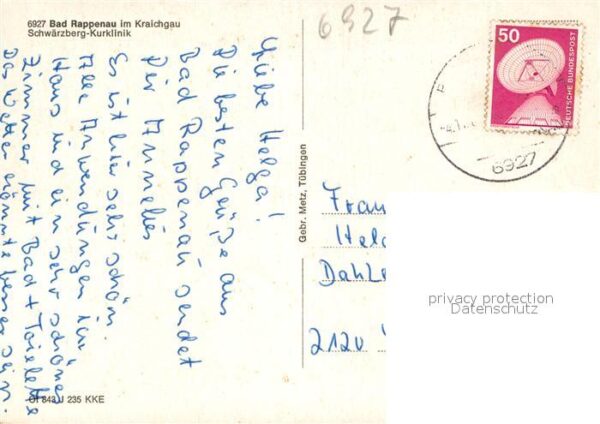 6927 Bad Rappenau im Kraichgau
Schwärzberg-Kurklinik
6927
50
DEUTSCHE BUNDESPOST
6927
Liebe Helga!
Die besten Grüße aus
Bad Rappenau sendet
Dir Annelies
Es ist hier sehr schön.
Alle Anwendungen im
Haus und ein sehr schönes
Zimmer mit Bad + Toilette
Das Wetter könnte besser sein.
Gebr. Metz, Tübingen
Frau
Hel
Dahle
2120
privacy protection
Datenschutz
843 J 235 KKE